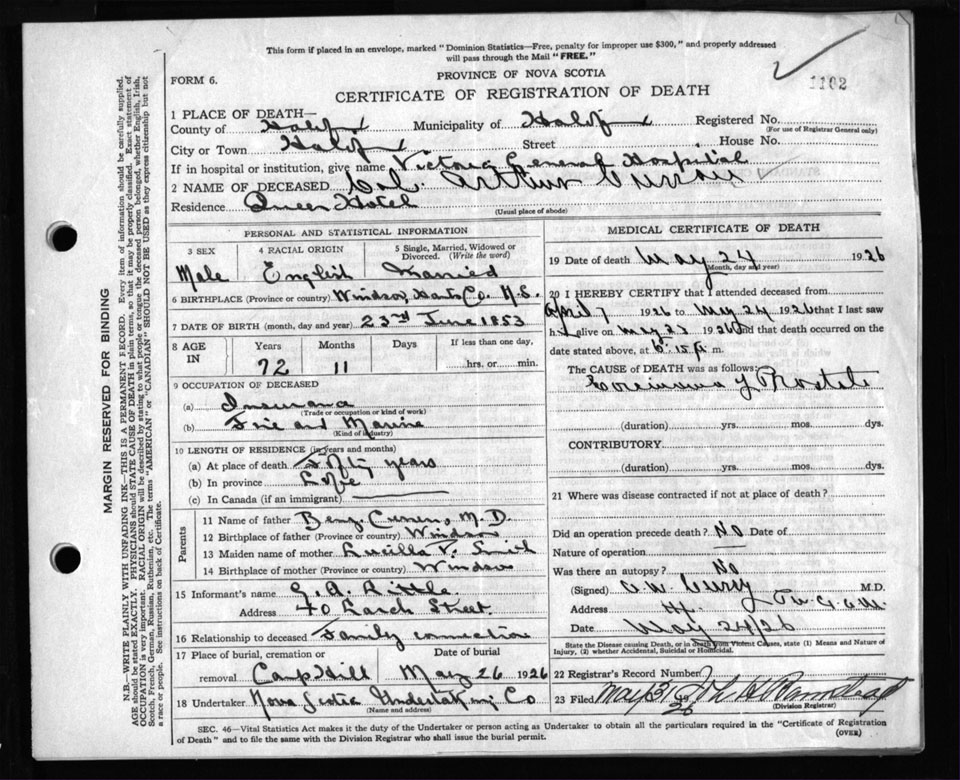 This form if placed in an envelope, marked "Dominion Statistics—Free, penalty for improper use $300," and properly addressed
will pass through the Mail "FREE."
PROVINCE OF NOVA SCOTIA
1102
FORM 6.
CERTIFICATE OF REGISTRATION OF DEATH
1 PLACE OF DEATH—
County of Halifax Municipality of Halifax Registered No.
(For use of Registrar General only)
City or Town Halifax Street House No.
If in hospital or institution, give name Victoria General Hospital
2 NAME OF DECEASED Col. Arthur Curren
Residence Queen Hotel
(Usual place of abode)
PERSONAL AND STATISTICAL INFORMATION
3 SEX 4 RACIAL ORIGIN 5 Single, Married, Widowed or Divorced. (Write the word)
Male English Married
6 BIRTHPLACE (Province or country) Windsor, Hants Co. N.S.
7 DATE OF BIRTH (month, day and year) 23rd June 1853
8 AGE IN Years Months Days If less than one day,
72 11 hrs. or min.
9 OCCUPATION OF DECEASED
(a) Insurance
(Trade or occupation or kind of work)
(b) Fire and Marine
(Kind of industry)
10 LENGTH OF RESIDENCE (in years and months)
(a) At place of death Fifty years
(b) In province Life
(c) In Canada (if an immigrant)
Parents
11 Name of father Benj. Curren, M.D.
12 Birthplace of father (Province or country) Windsor
13 Maiden name of mother Lucilla Smith
14 Birthplace of mother (Province or country) Windsor
15 Informant's name G. A.
Address 40 Street
16 Relationship to deceased Family connection
17 Place of burial, cremation or removal Date of burial
Camp Hill May 26 1926
18 Undertaker Nova Scotia Undertaking Co
(Name and address)
MEDICAL CERTIFICATE OF DEATH
19 Date of death May 24 1926
(Month, day and year)
20 I HEREBY CERTIFY that I attended deceased from
April 7 1926 to May 24 1926 that I last saw
h alive on May 23 1926 and that death occurred on
date stated above, at m.
The CAUSE OF DEATH was as follows:
Carcinoma of Prostate
(duration) yrs. mos. dys.
CONTRIBUTORY
(duration) yrs. mos. dys.
21 Where was disease contracted if not at place of death?
Did an operation precede death? No Date of
Nature of operation
Was there an autopsy? No
(Signed) M.D.
Address
Date May 24/26
State the Disease causing Death, or in Death from Violent Causes, state (1) Means and Nature of
Injury, (2) whether Accidental, Suicidal or Homicidal.
22 Registrar's Record Number
23 Filed May 31 26
(Division Registrar)
SEC. 46—Vital Statistics Act makes it the duty of the Undertaker or person acting as Undertaker to obtain all the particulars required in the "Certificate of Registration
of Death" and to file the same with the Division Registrar who shall issue the burial permit.
(OVER)
MARGIN RESERVED FOR BINDING
N.B.—WRITE PLAINLY WITH UNFADING INK—THIS IS A PERMANENT RECORD. Every item of information should be carefully supplied.
AGE should be stated EXACTLY. PHYSICIANS should STATE CAUSE OF DEATH in plain terms, so that it may be properly classified. Exact statement of
OCCUPATION is very important. RACIAL ORIGIN will be described by stating to what people or tongue the deceased person belonged, whether English, Irish,
Scotch, French, German, Russian, Ruthenian, etc. The terms "AMERICAN" or "CANADIAN" SHOULD NOT BE USED as they express citizenship but not
a race or people. See instructions on back of Certificate.